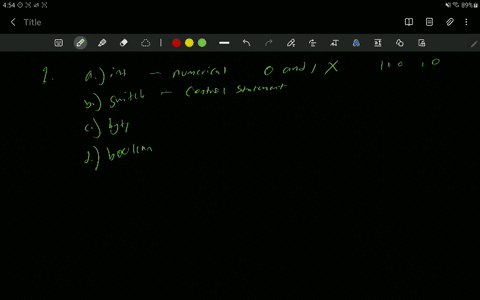 4:54
89%
Title
1. a.) int – numerical 0 and 1 X 1 1 0 1 0
b.) switch – control statement
c.) byte
d.) boolean